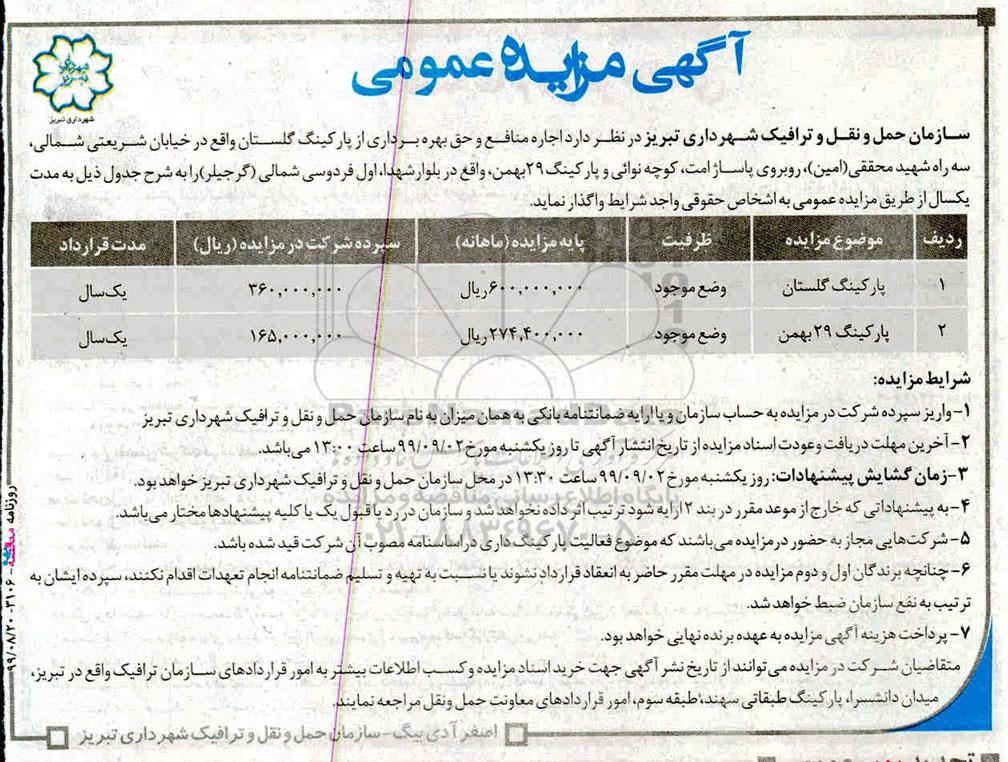 آگهی مزایده عمومی
شهرداری تبریز
شهرداری تبریز
سازمان حمل و نقل و ترافیک شهرداری تبریز در نظر دارد اجاره منافع و حق بهره برداری از پارکینگ گلستان واقع در خیابان شریعتی شمالی،
سه راه شهید محققی(امین)، روبروی پاساژ امت، کوچه نوائی و پارکینگ ۲۹بهمن، واقع در بلوار شهدا، اول فردوسی شمالی (گرجیلر)را به شرح جدول ذیل به مدت
یکسال از طریق مزایده عمومی به اشخاص حقوقی واجد شرایط واگذار نماید.
ردیف موضوع مزایده ظرفیت پایه مزایده(ماهانه) سپرده شرکت در مزایده (ریال) مدت قرارداد
۱ پارکینگ گلستان وضع موجود ۶۰۰,۰۰۰,۰۰۰ریال ۳۶۰,۰۰۰,۰۰۰ یک سال
۲ پارکینگ ۲۹ بهمن وضع موجود ۲۷۴,۴۰۰,۰۰۰ریال ۱۶۵,۰۰۰,۰۰۰ یک سال
شرایط مزایده:
۱-واریز سپرده شرکت در مزایده به حساب سازمان و یا ارایه ضمانتنامه بانکی به همان میزان به نام سازمان حمل و نقل و ترافیک شهرداری تبریز
۲-آخرین مهلت دریافت وعودت اسناد مزایده از تاریخ انتشار آگهی تا روز یکشنبه مورخ ۹۹/۰۹/۰۲ ساعت ۱۳:۰۰ می باشد.
۳-زمان گشایش پیشنهادات: روز یکشنبه مورخ ۹۹/۰۹/۰۲ ساعت ۱۳:۳۰ در محل سازمان حمل و نقل و ترافیک شهرداری تبریز خواهد بود.
۴-به پیشنهاداتی که خارج از موعد مقرر در بند ۲ ارایه شود ترتیب اثر داده نخواهد شد و سازمان در رد یا قبول یک یا کلیه پیشنهادها مختار می باشد.
۵-شرکت هایی مجاز به حضور در مزایده می باشند که موضوع فعالیت پارکینگ داری در اساسنامه مصوب آن شرکت قید شده باشد.
۶-چنانچه برندگان اول و دوم مزایده در مهلت مقرر حاضر به انعقاد قرارداد نشوند یا نسبت به تهیه و تسلیم ضمانتنامه انجام تعهدات اقدام نکنند، سپرده ایشان به
ترتیب به نفع سازمان ضبط خواهد شد.
۷-پرداخت هزینه آگهی مزایده به عهده برنده نهایی خواهد بود.
متقاضیان شرکت در مزایده می توانند از تاریخ نشر آگهی جهت خرید اسناد مزایده و کسب اطلاعات بیشتر به امور قراردادهای سازمان ترافیک واقع در تبریز،
میدان دانشسرا، پارکینگ طبقاتی سهند، طبقه سوم، امور قراردادهای معاونت حمل ونقل مراجعه نمایند.
اصغر آدی بیگ - سازمان حمل و نقل و ترافیک شهرداری تبریز
روزنامه مناقصه - ۳۱۰۶ - ۹۹/۰۸/۲۰
پایگاه اطلاع رسانی مناقصه و مزایده
۰۲۱-۸۸۳۴۹۶۷۰-۵